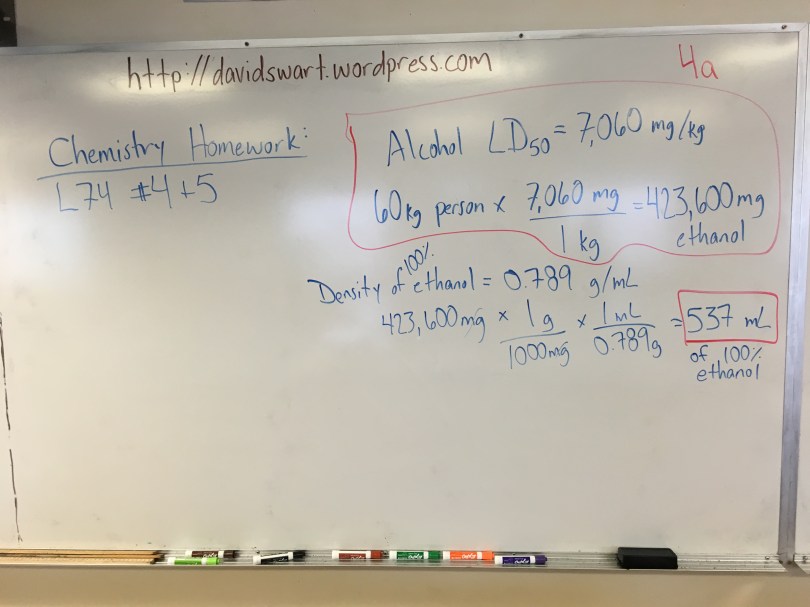 http://davidswart.wordpress.com
4a
Chemistry Homework:
L74 #4+5
Alcohol LD50 = 7,060 mg/kg
60kg person x 7,060 mg / 1 kg = 423,600mg ethanol
Density of 100% ethanol = 0.789 g/mL
423,600mg x 1g / 1000mg x 1mL / 0.789g = 537 mL
of 100%
ethanol